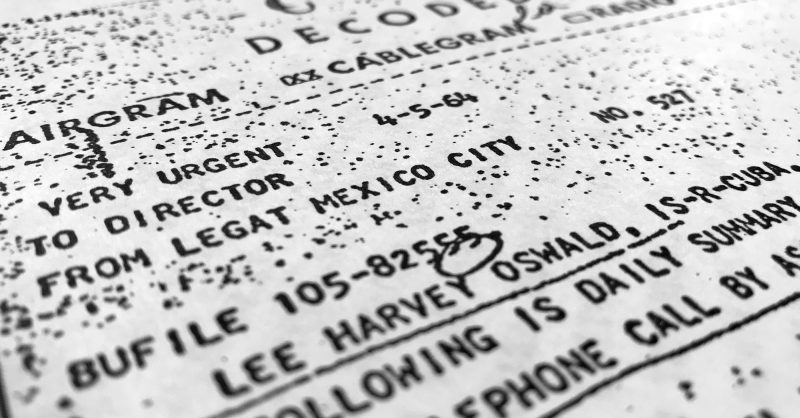 DECODE
AIRGRAM xx CABLEGRAM □ RADIO
VERY URGENT 4-5-64 NO. 527
TO DIRECTOR
FROM LEGAT MEXICO CITY
BUFILE 105-82555
LEE HARVEY OSWALD, IS-R-CUBA.
FOLLOWING IS DAILY SUMMARY
TELEPHONE CALL BY AS